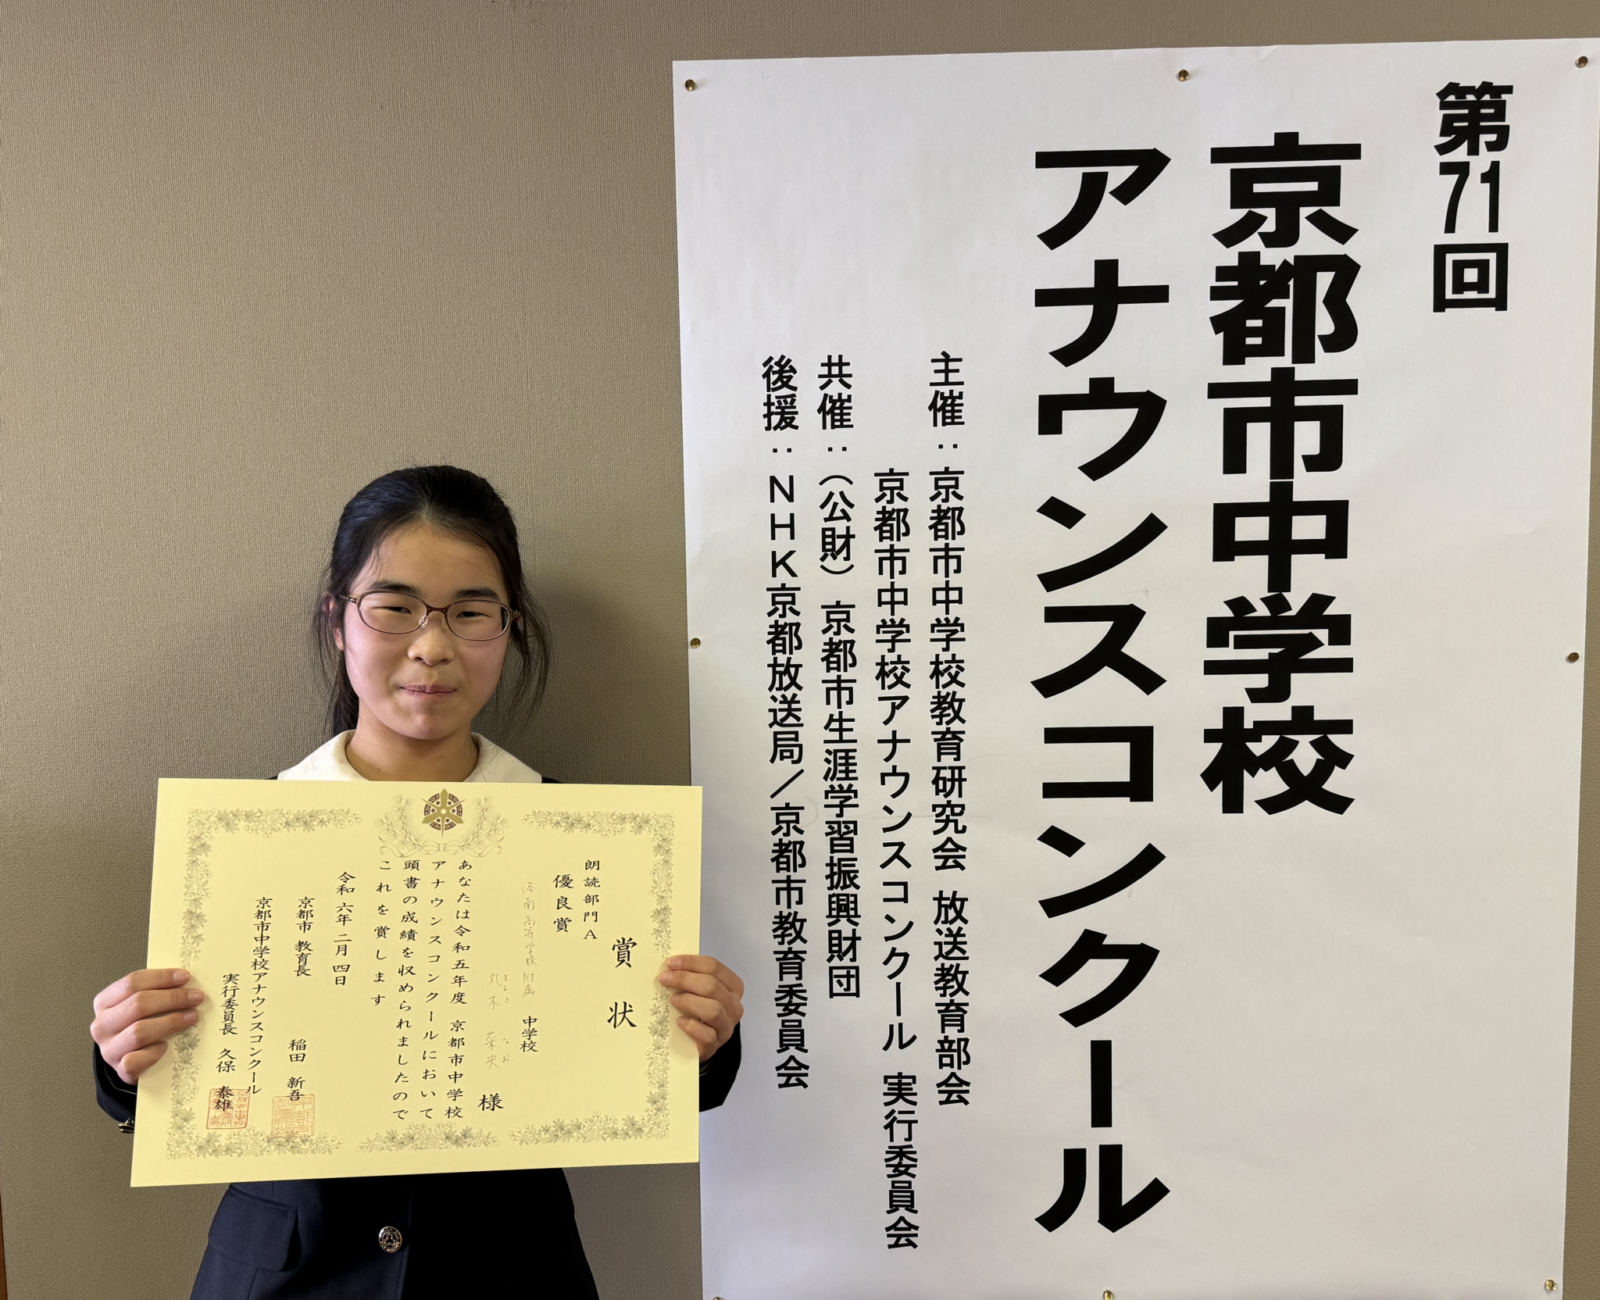 第71回
京都市中学校
アナウンスコンクール
主催：京都市中学校教育研究会 放送教育部会
京都市中学校アナウンスコンクール 実行委員会
共催：（公財）京都市生涯学習振興財団
後援：ＮＨＫ京都放送局／京都市教育委員会
賞状
朗読部門A
優良賞
洛南高等学校附属 中学校
まるき なお
丸木 菜央 様
あなたは令和五年度 京都市中学校
アナウンスコンクールにおいて
頭書の成績を収められましたので
これを賞します
令和六年二月四日
京都市 教育長 稲田 新吾
京都市中学校アナウンスコンクール
実行委員長 久保 泰雄